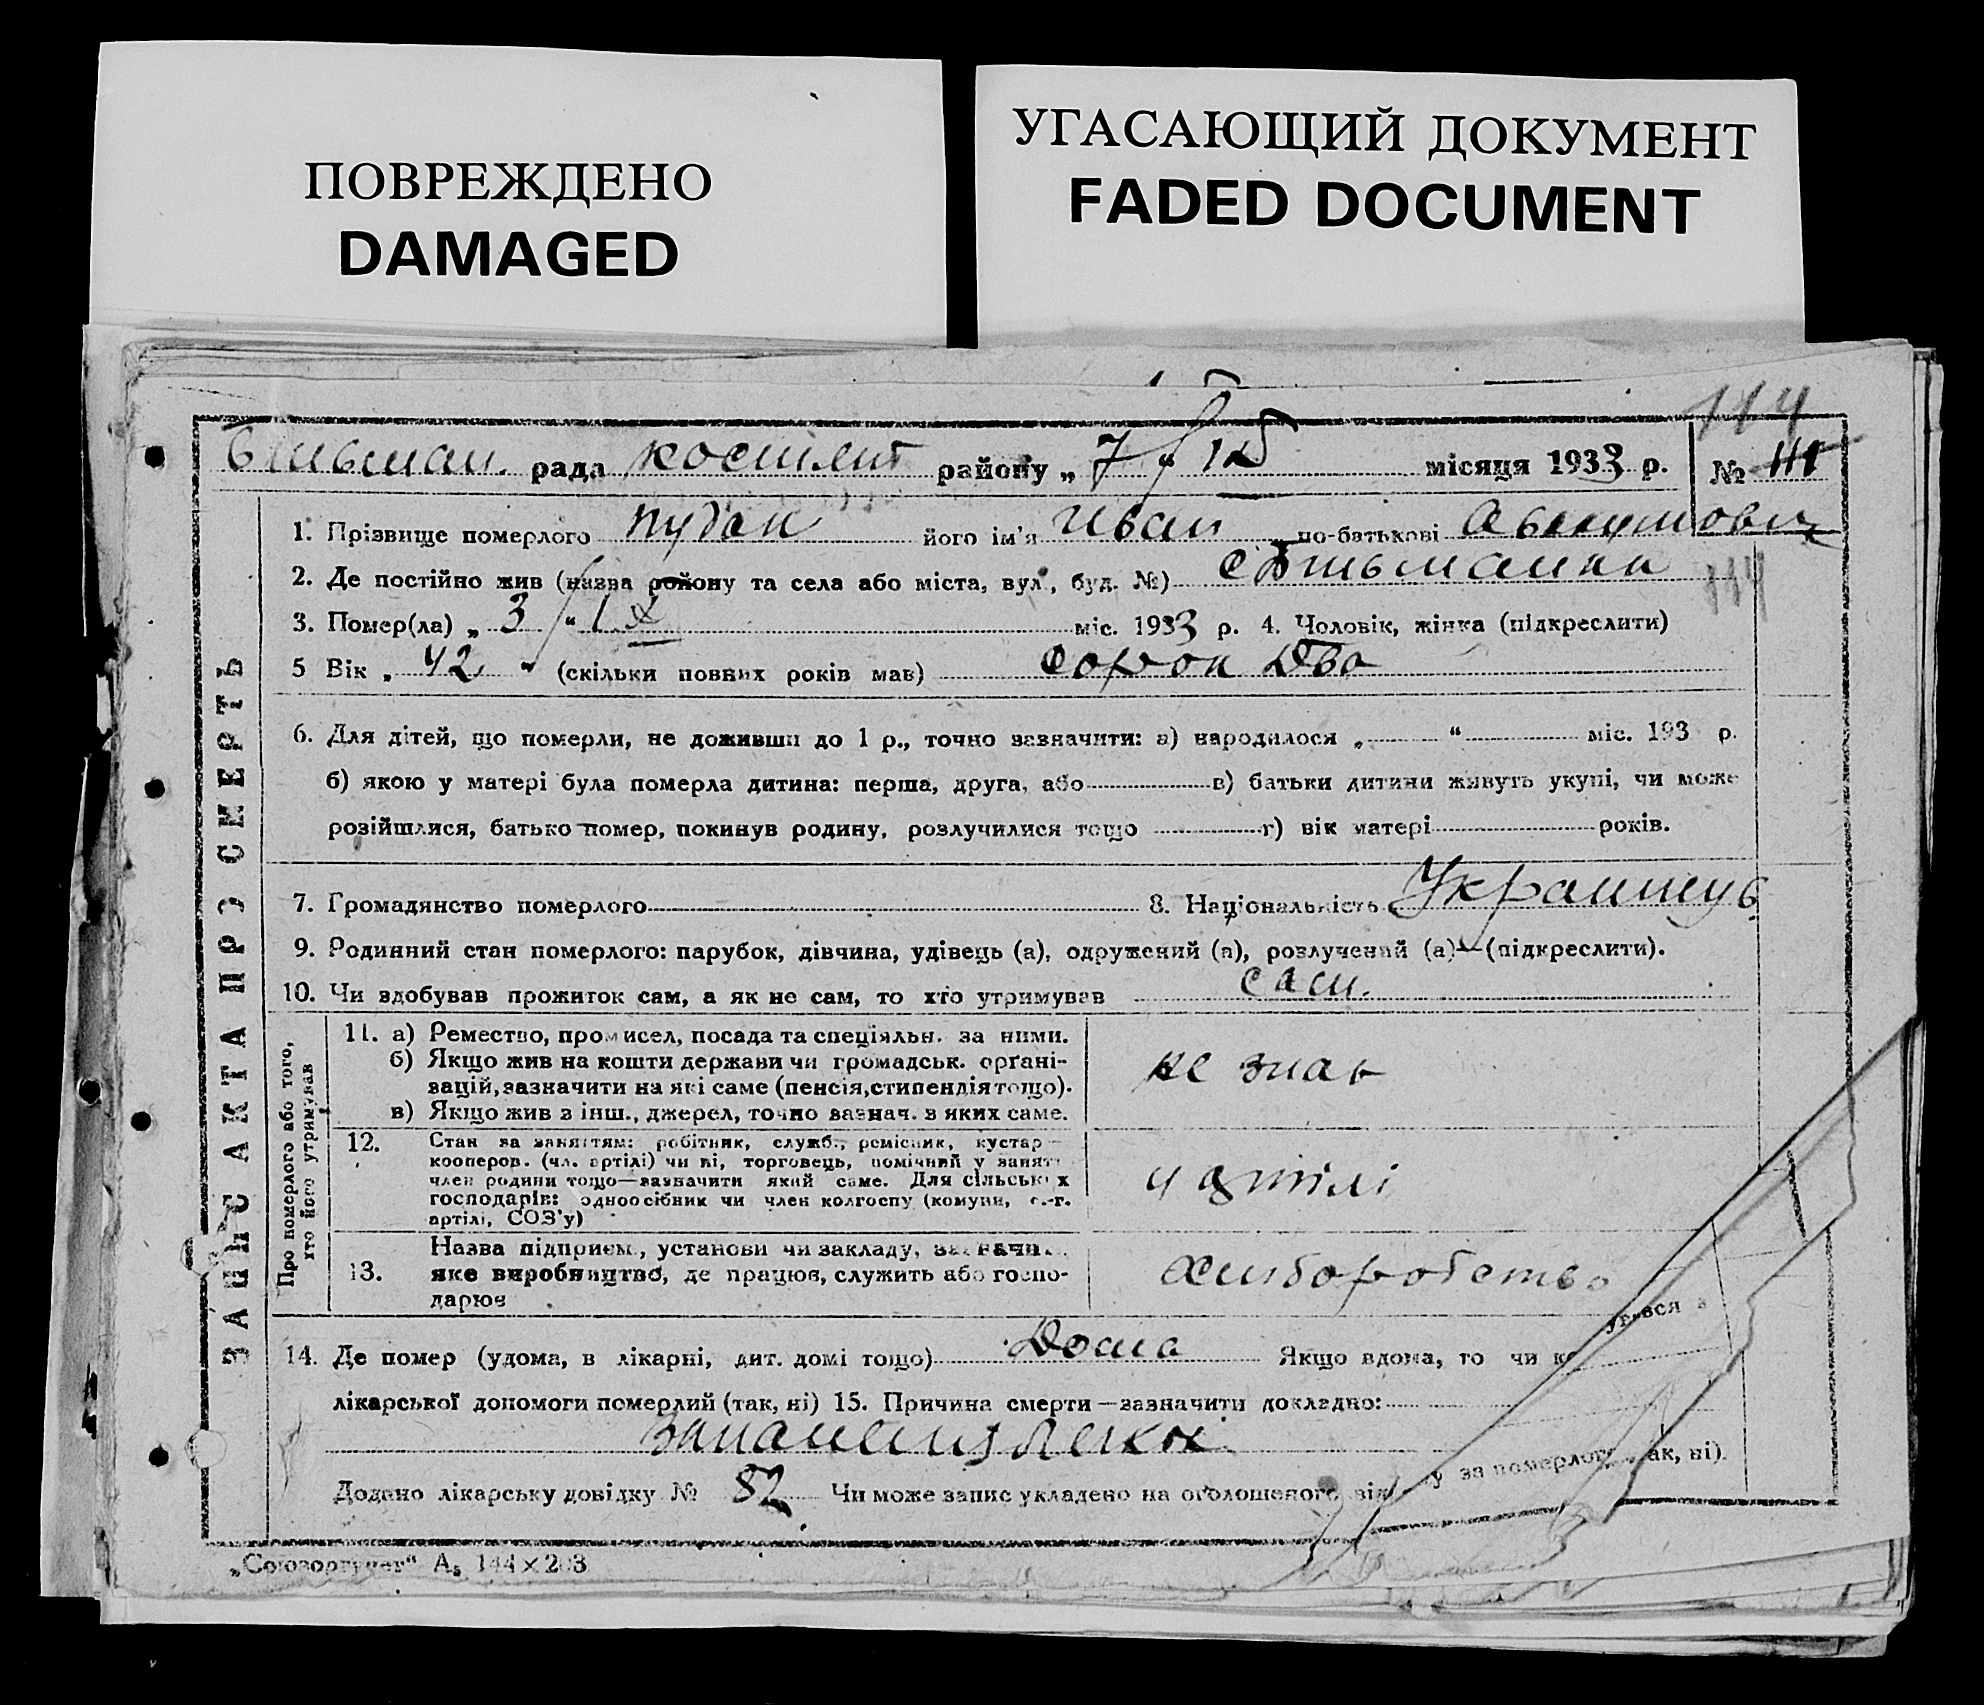 ПОВРЕЖДЕНО
DAMAGED
УГАСАЮЩИЙ ДОКУМЕНТ
FADED DOCUMENT
114
рада района району „ 7 “ місяця 1933 р. № 111
ЗАПИС АКТА ПРО СМЕРТЬ
1. Прізвище померлого Пудак його ім'я Иван по-батькові
2. Де постійно жив (назва району та села або міста, вул., буд. №)
114
3. Помер(ла) „ 3 “ міс. 1933 р. 4. Чоловік, жінка (підкреслити)
5 Вік „ 42 “ (скільки повних років мав) сорок два
6. Для дітей, що померли, не доживши до 1 р., точно зазначити: а) народилося „ “ міс. 193 р.
б) якою у матері була померла дитина: перша, друга, або в) батьки дитини живуть укупі, чи може
розійшлися, батько помер, покинув родину, розлучилися тощо г) вік матері років.
7. Громадянство померлого 8. Національність
9. Родинний стан померлого: парубок, дівчина, удівець (а), одружений (а), розлучений (а)—(підкреслити).
10. Чи здобував прожиток сам, а як не сам, то хто утримував сам.
Про померлого або того,
хто його утримував
11. а) Ремество, промисел, посада та спеціяльн. за ними.
б) Якщо жив на кошти держави чи громадськ. орґані-
зацій, зазначити на які саме (пенсія, стипендія тощо).
в) Якщо жив з інш., джерел, точно зазнач. з яких саме.
не знаю
12. Стан за заняттям: робітник, служб., ремісник, кустар
кооперов. (чл. артілі) чи ні, торговець, помічний у занят
член родини тощо—зазначити який саме. Для сільських
господарів: одноосібник чи член колгоспу (комуни, с.-г.
артілі, СОЗ'у)
13. Назва підприєм., установи чи закладу, зазначи
яке виробництво, де працює, служить або госпо-
дарює
14. Де помер (удома, в лікарні, дит. домі тощо) Дома Якщо вдома, то чи ко
лікарської допомоги померлий (так, ні) 15. Причина смерти—зазначити докладно:
Додано лікарську довідку № 82 Чи може запис укладено на оголошеного за померлого так, ні).
„Союзоргучет“ А₅ 144×203